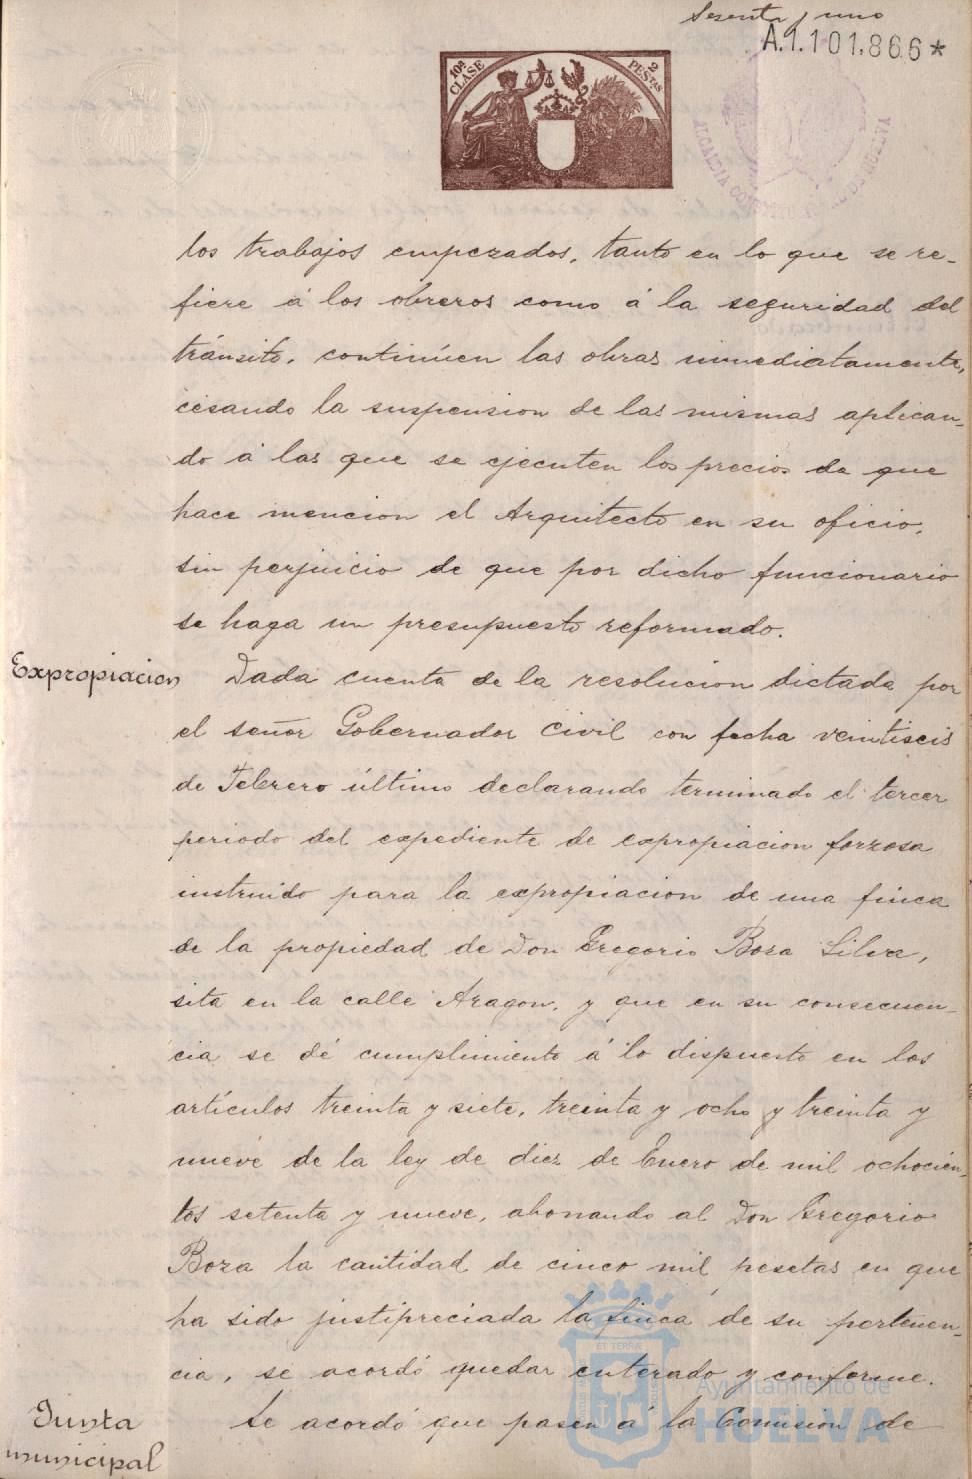 Sesenta y uno
A.1.101.866*
10ª CLASE
2 PESTAS
ALCALDIA CONSTITUCIONAL DE HUELVA
los trabajos empezados, tanto en lo que se re-
fiere á los obreros como á la seguridad del
tránsito, continúen las obras inmediatamente,
cesando la suspension de las mismas aplican-
do á las que se ejecuten los precios de que
hace mencion el Arquitecto en su oficio,
sin perjuicio de que por dicho funcionario
se haga un presupuesto reformado.
Expropiacion
Dada cuenta de la resolucion dictada por
el señor Gobernador Civil con fecha veintiseis
de Febrero último declarando terminado el tercer
periodo del expediente de expropiacion forzosa
instruido para la expropiacion de una finca
de la propiedad de Don Gregorio Boza Silva,
sita en la calle Aragon, y que en su consecuen-
cia se dé cumplimiento á lo dispuesto en los
artículos treinta y siete, treinta y ocho y treinta y
nueve de la ley de diez de Enero de mil ochocien-
tos setenta y nueve, abonando al Don Gregorio
Boza la cantidad de cinco mil pesetas en que
ha sido justipreciada la finca de su pertenen-
cia, se acordó quedar enterado y conforme.
Junta
municipal
Se acordó que pasen á la Comision de
Ayuntamiento de
HUELVA